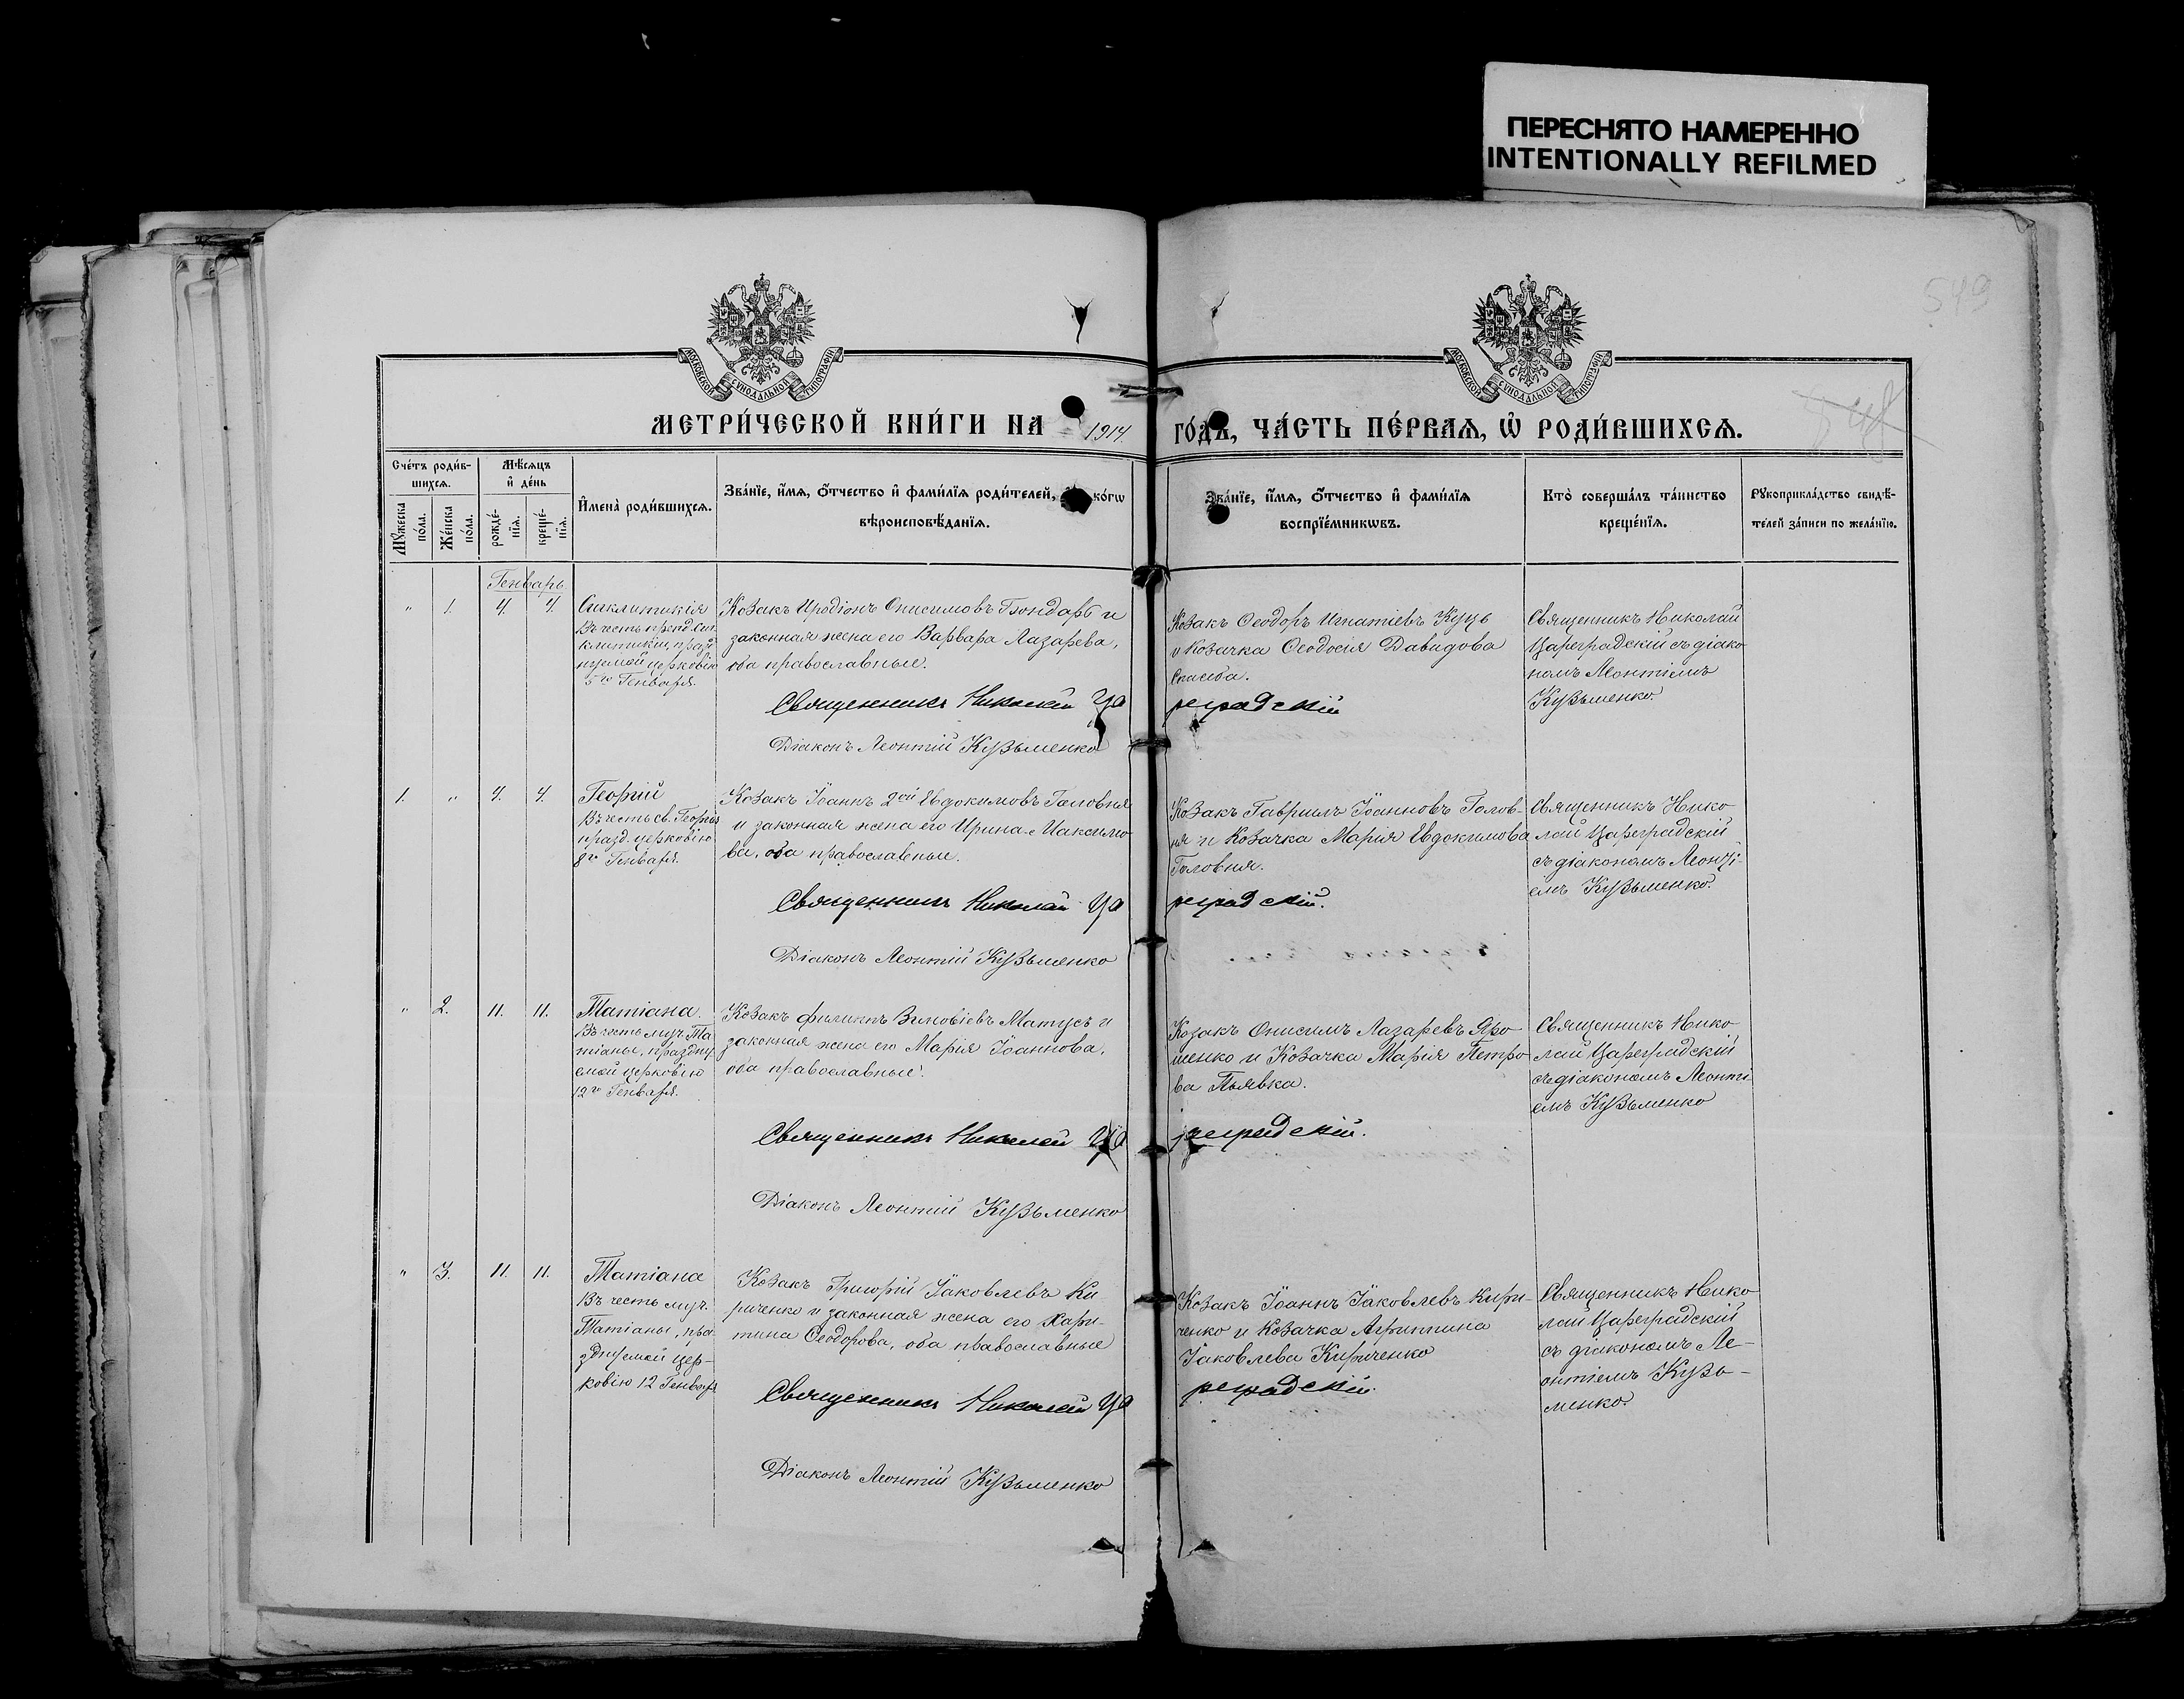 ПЕРЕСНЯТО НАМЕРЕННО
INTENTIONALLY REFILMED
549
МОСКОВСКОЙ СѴНОДАЛЬНОЙ ТИПОГРАФІИ
МОСКОВСКОЙ СѴНОДАЛЬНОЙ ТИПОГРАФІИ
МЕТРИ́ЧЕСКОЙ КНИ́ГИ НА 1914.
ГО́ДЪ, ЧА́СТЬ ПЕ́РВАѦ, Ѡ҆ РОДИ́ВШИХСѦ.
Сче́тъ роди́в-
шихсѧ.
Мꙋ́жеска
по́ла.
Же́нска
по́ла.
Мѣ́сѧцъ
и҆ де́нь
рожде́-
нїѧ.
креще́-
нїѧ.
И҆мена̀ роди́вшихсѧ.
Зва́нїе, и҆́мѧ, ѻ҆́тчество и҆ фами́лїѧ роди́телей, и҆ како́гѡ
вѣроисповѣ́данїѧ.
Зва́нїе, и҆́мѧ, ѻ҆́тчество и҆ фами́лїѧ
воспрїе́мникѡвъ.
Кто̀ соверша́лъ та́инство
креще́нїѧ.
Рꙋкоприкла́дство свидѣ́-
телей за́писи по жела́нїю.
Генварь
" 1. 4 4.
Синклитикія
Въ честь препд. Син
клитикіи, празд
нуемой церковію
5го Генваря.
Козакъ Иродіонъ Онисимовъ Бондарь и
законная жена его Варвара Лазарева,
оба православные.
Священникъ Николай Ца
реградскій
Діаконъ Леонтій Кузьменко
Козакъ Ѳеодоръ Игнатіевъ Куць
и Козачка Ѳеодосія Давидова
Священникъ Николай
Цареградскій съ діако
номъ Леонтіемъ
Кузьменко.
1. " 4. 4.
Георгій
Въ честь св. Георгія
празд. церковію
8го Генваря.
Козакъ Іоаннъ 2ой Евдокимовъ Головня
и законная жена его Ирина Максимо
ва, оба православные.
Священникъ Николай Ца
реградскій.
Діаконъ Леонтій Кузьменко
Козакъ Гавріилъ Іоанновъ Голов-
ня и Козачка Марія Евдокимова
Головня.
Священникъ Нико
лай Цареградскій
съ діакономъ Леонті-
емъ Кузьменко.
" 2. 11. 11.
Татіана.
Въ честь муч. Та
тіаны, праздну
емой церковію
12го Генваря.
Козакъ Филиппъ Зиновіевъ Матусъ и
законная жена его Марія Іоаннова,
оба православные.
Священникъ Николай Ца
реградскій.
Діаконъ Леонтій Кузьменко
Козакъ Онисимъ Лазаревъ Яро
шенко и Козачка Марія Петро
ва Пьявка.
Священникъ Нико
лай Цареградскій
съ діакономъ Леонті
емъ Кузьменко
" 3. 11. 11.
Татіана
Въ честь муч.
Татіаны, пра
зднуемой цер-
ковію 12 Генваря
Козакъ Григорій Іаковлевъ Ки
риченко и законная жена его Хари-
тина Ѳеодорова, оба православные
Священникъ Николай Ца
реградскій.
Діаконъ Леонтій Кузьменко
Козакъ Іоаннъ Іаковлевъ Кири-
ченко и Козачка Агриппина
Іаковлева Кириченко
Священникъ Нико
лай Цареградскій
съ діакономъ Ле-
онтіемъ Кузь-
менко.